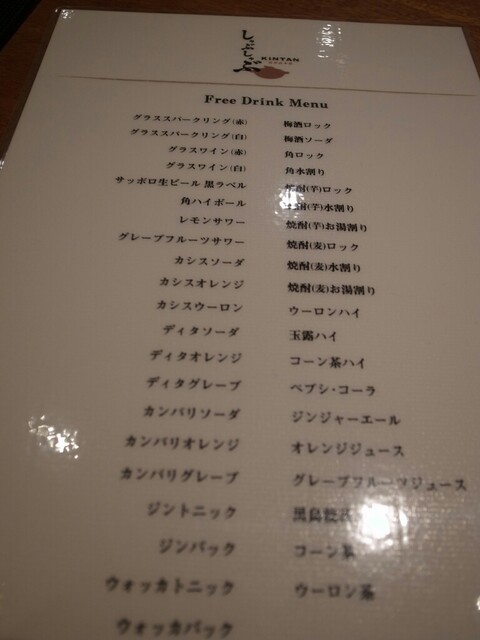 しゃぶしゃぶ
KINTAN
Free Drink Menu
グラススパークリング(赤)
グラススパークリング(白)
グラスワイン(赤)
グラスワイン(白)
サッポロ生ビール 黒ラベル
角ハイボール
レモンサワー
グレープフルーツサワー
カシスソーダ
カシスオレンジ
カシスウーロン
ディタソーダ
ディタオレンジ
ディタグレープ
カンパリソーダ
カンパリオレンジ
カンパリグレープ
ジントニック
ジンバック
ウォッカトニック
ウォッカバック
梅酒ロック
梅酒ソーダ
角ロック
角水割り
焼酎(芋)ロック
焼酎(芋)水割り
焼酎(芋)お湯割り
焼酎(麦)ロック
焼酎(麦)水割り
焼酎(麦)お湯割り
ウーロンハイ
玉露ハイ
コーン茶ハイ
ペプシ・コーラ
ジンジャーエール
オレンジジュース
グレープフルーツジュース
黒烏龍茶
コーン茶
ウーロン茶